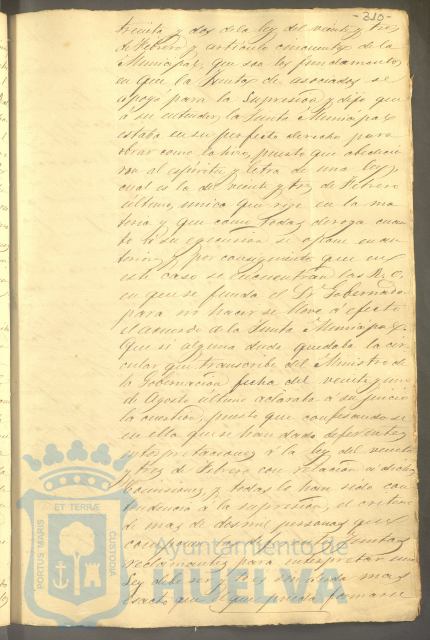 -310-
treinta y dos de la ley del veinte y tres
de Febrero y artículo cincuenta de la
Municipal, que son los fundamentos
en que la Junta de asociados se
apoyó para la Supresion, y dijo que
á su entender, la Junta Municipal
estaba en su perfecto derecho para
obrar como lo hizo, puesto que obedecia
al espíritu y letra de una ley,
cual es la del veinte y tres de Febrero
último, única que rige en la ma
teria y que como todas deroga cuan
to á su egecucion se opone en an
terior, y por consiguiente que en
este caso se encuentran las R. O.
en que se funda el Sr. Gobernador
para no hacer se lleve á efecto
el acuerdo de la Junta Municipal.
Que si alguna duda quedaba la cir
cular que transcribe del Ministro de
la Gobernacion fecha del veinte y uno
de Agosto último aclaraba á su juicio
la cuestion, puesto que confesandose
en ella que se han dado diferentes
interpretaciones á la ley del veinte
y tres de Febrero con relacion á dichas
comisiones, y todas lo han sido con
tendencia á la supresion, el criterio
de mas de dos mil personas que
componen las Juntas
reclamantes para interpretar una
Ley debe ser sin duda mas
exacto que el que pueda formarse
PORTUS MARIS ET TERRÆ CUSTODIA
Ayuntamiento de
HUELVA